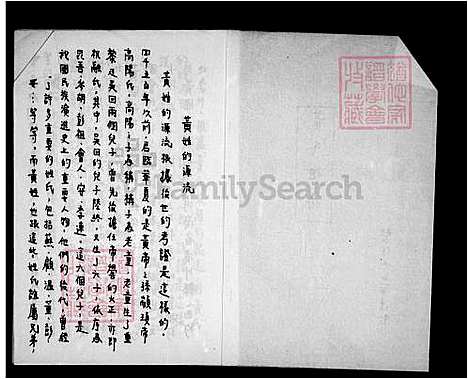 黃姓的源流
黃姓的源流根據後世的考證是這樣的，
四千五百年以前君臨華夏的是黃帝之孫顓頊帝
高陽氏，高陽之子為稱，稱子為老童，老童生了重
黎及吳回兩個兒子，曾先後擔任帝嚳的火正，亦即
祝融氏，其中，吳回的兒子陸終，又生了六子，依序為
昆吾、參胡、彭祖、會人、安、季連，這六個兒子，是
我國民族演進史上的重要人物，他們的後代，曾經
了許多重要的姓氏，包括蘇、顧、溫、董、彭
等等，而黃姓，也跟這些姓氏誼屬兄弟，
FamilySearch